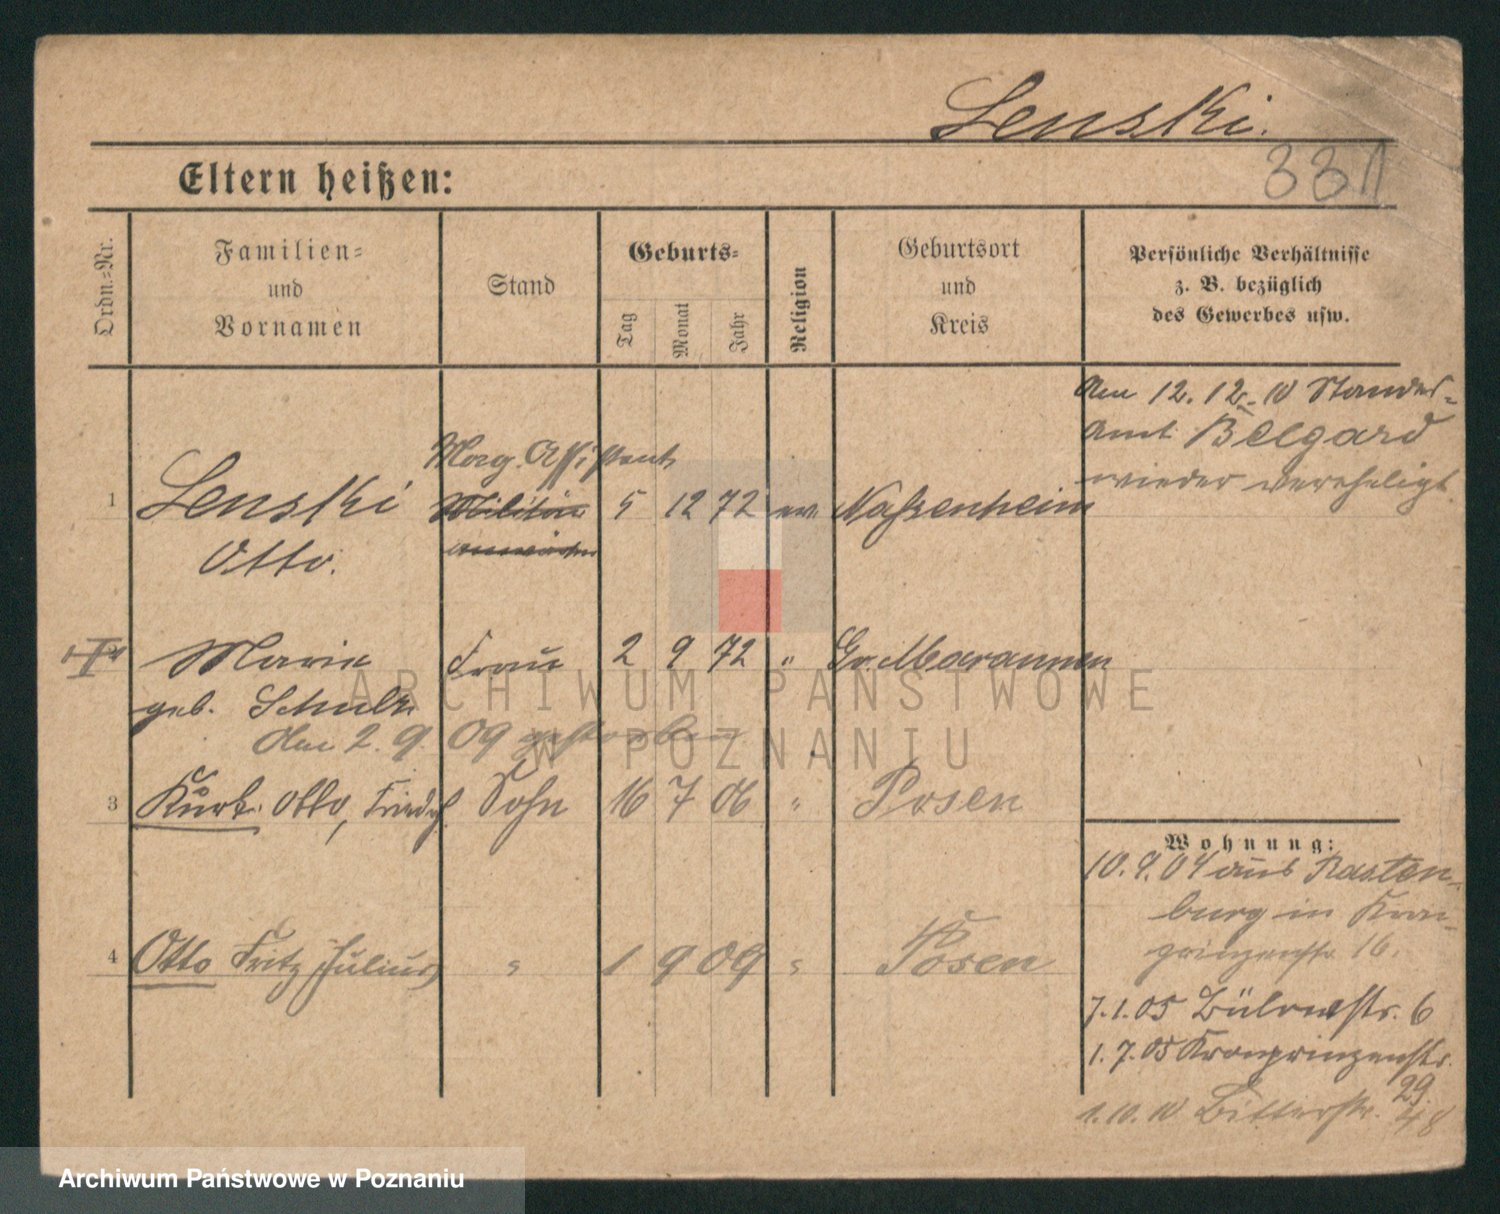 Lenski.
331
Eltern heißen:
Ordn.=Nr.
Familien=
und
Vornamen
Stand
Geburts=
Tag
Monat
Jahr
Religion
Geburtsort
und
Kreis
Persönliche Verhältnisse
z. B. bezüglich
des Gewerbes usw.
Am 12. 12. 10 Standes=
Amt Belgard
wieder verehelicht.
Mag. Assistent
1 Lenski Militär 5 12 72 ev. Naßenheim
Otto. anwärter
Marie Frau 2 9 72 " Gr. Maraunen
geb. Schulz
den 2. 9. 09 gestorben
3 Kurt Otto, Friedr. Sohn 16 7 06 " Posen
4 Otto Fritz Julius " 1 9 09 " Posen
Wohnung:
10. 9. 04 aus Rasten-
burg in Kron-
prinzenstr 16.
7. 1. 05 Bülowstr. 6
1. 7. 05 Kronprinzenstr.
29.
1. 10. 10 Bitterstr. 48
ARCHIWUM PAŃSTWOWE
W POZNANIU
Archiwum Państwowe w Poznaniu